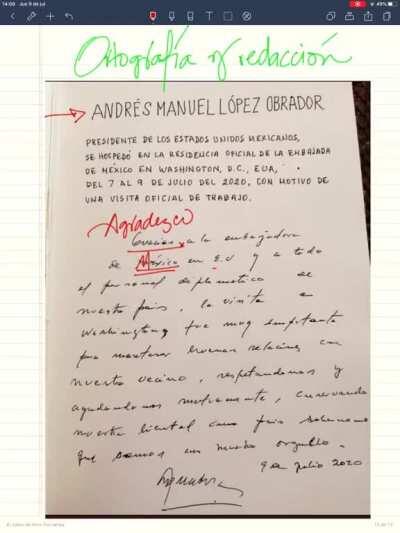 14:00 Jue 9 de jul
Ortografía y redacción
ANDRÉS MANUEL LÓPEZ OBRADOR
PRESIDENTE DE LOS ESTADOS UNIDOS MEXICANOS,
SE HOSPEDÓ EN LA RESIDENCIA OFICIAL DE LA EMBAJADA
DE MÉXICO EN WASHINGTON, D.C., EUA,
DEL 7 AL 9 DE JULIO DEL 2020, CON MOTIVO DE
UNA VISITA OFICIAL DE TRABAJO.
Agradezco
Gracias a la embajadora
de México en E.U y a todo
el personal diplomatico de
nuestro pais, la visita a
Washington fue muy importante
para mantener buenas relaciones con
nuestro vecino, respetandonos y
ayudandonos mutuamente,
nuestra como pais
que somos orgullo.
9 de julio 2020